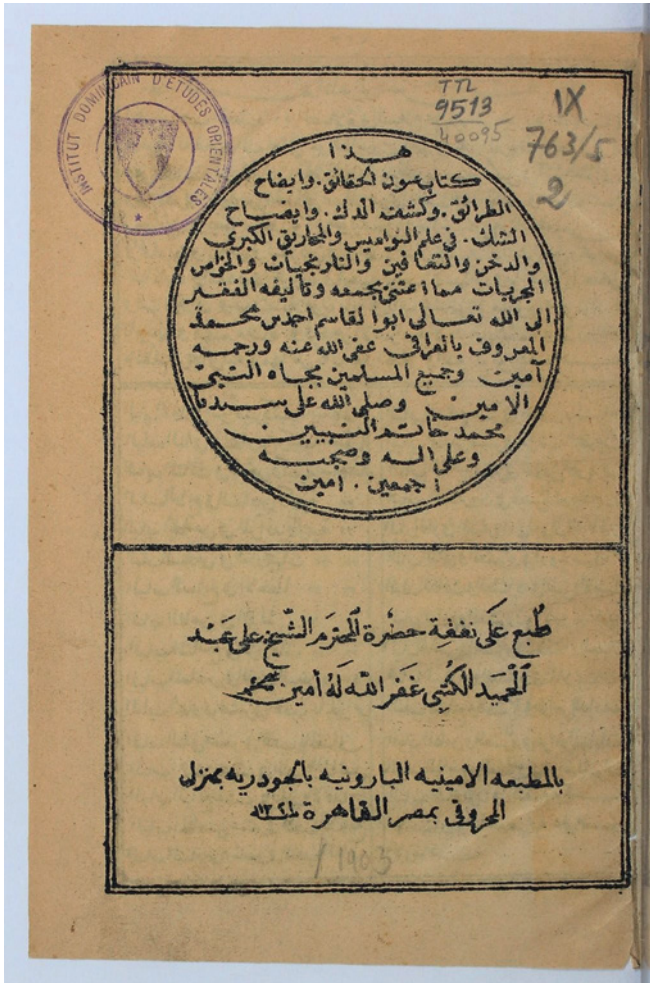 INSTITUT DOMINICAIN D'ETUDES ORIENTALES
TTL
9513
40095
IX
763/5
2
هـذا
كتاب عيون الحقائق. وايضاح
الطرائق. وكشف الدك. وايضاح
الشك. في علم النواميس والمخاريق الكبرى
والدخن والتعافين والنارنجيات والخواص
المجربات مما اعتنى بجمعه وتأليفه الفقير
الى الله تعالى ابوا لقاسم احمد بن محمد
المعروف بالعراقي عفى الله عنه ورحمه
آمين وجميع المسلمين بجاه النبي
الامين وصلى الله على سيدنا
محمد خاتم النبيين
وعلى اله وصحبه
اجمعين. امين
طُبع عَلَى نفقة حضرة المحترم الشيخ على عَبْد
الْحَمِيد الكُتبِى غَفر الله لَهُ أمين
بالمطبعه الامينيه البارونيه بالجودريه بمنزل
المحروقى بمصر القاهرة
/ 1903